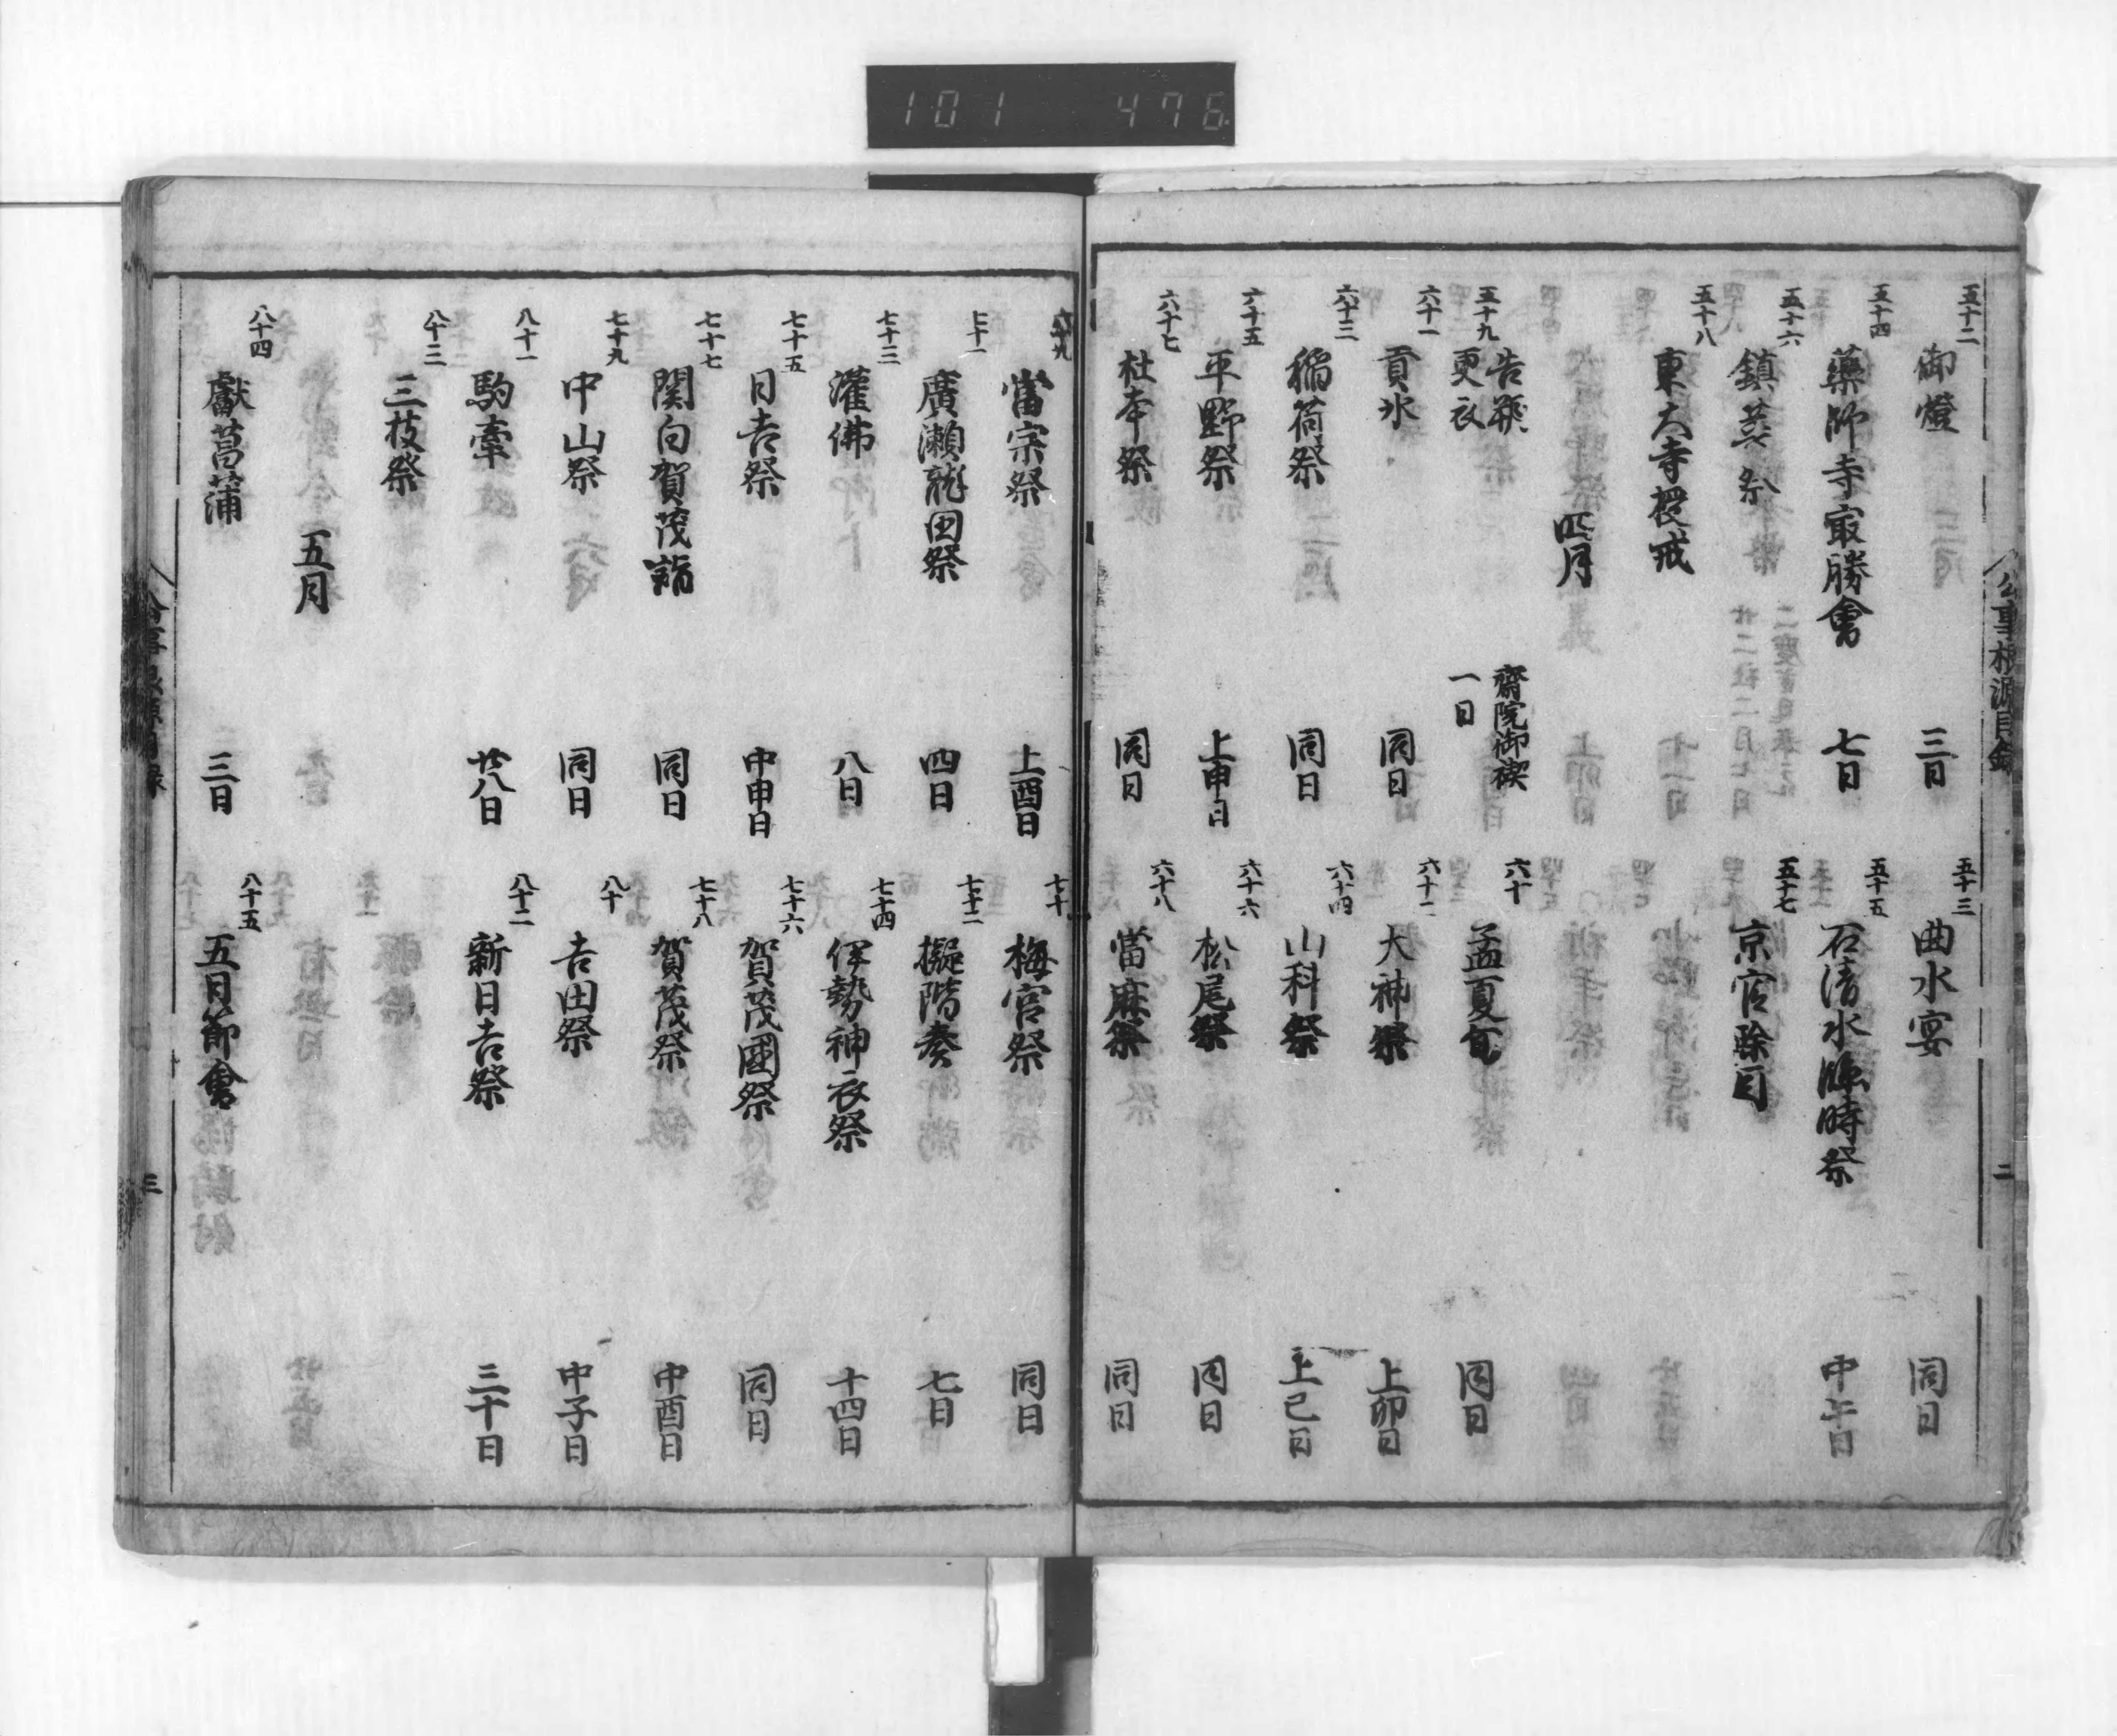 101 476
公事根源目録 二
五十二 御燈 三日
五十三 曲水宴 同日
五十四 藥師寺最勝會 七日
五十五 石清水臨時祭 中午日
五十六 鎮花祭
五十七 京官除目
五十八 東大寺授戒
四月
五十九 告朔 更衣 齋院御禊 一日
六十 孟夏旬 同日
六十一 貢氷 同日
六十二 大神祭 上卯日
六十三 稲荷祭 同日
六十四 山科祭 上巳日
六十五 平野祭 上申日
六十六 松尾祭 同日
六十七 杜本祭 同日
六十八 當麻祭 同日
六十九 當宗祭 上酉日
七十 梅宮祭 同日
七十一 廣瀬龍田祭 四日
七十二 擬階奏 七日
七十三 灌佛 八日
七十四 伊勢神衣祭 十四日
七十五 日吉祭 中申日
七十六 賀茂國祭 同日
七十七 関白賀茂詣 同日
七十八 賀茂祭 中酉日
七十九 中山祭 同日
八十 吉田祭 中子日
八十一 駒牽 廿八日
八十二 新日吉祭 三十日
八十三 三枝祭
五月
八十四 獻菖蒲 三日
八十五 五日節會
公事根源目録 三